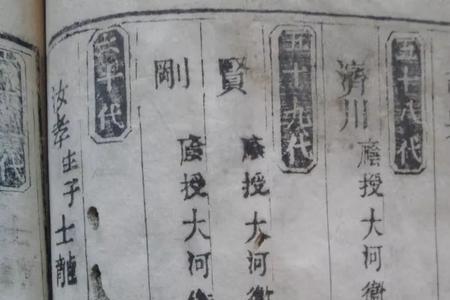 五十八代
濟川 廕授大河衛
五十九代
賢 廕授大河衛
剛 廕授大河衛
六十代
汝孝生子士龍